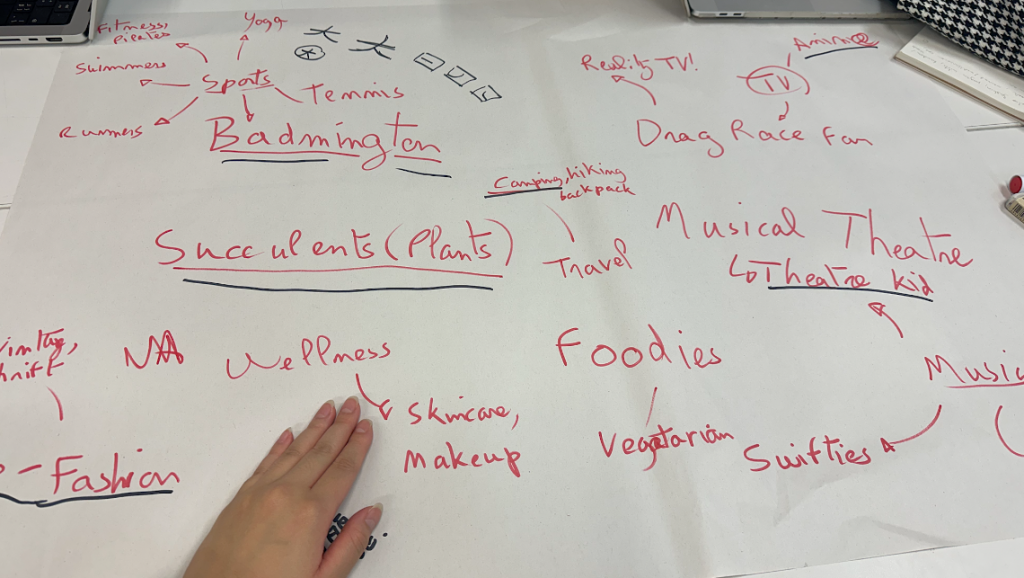 Fitness,
pilates
Yoga
Swimmers
Sports
Tennis
Runners
Badmington
大 大
Reality TV!
Anime
TV
Drag Race Fan
Camping, hiking
backpack
Succulents (Plants)
Travel
Musical Theatre
Theatre kid
Wellness
Skincare,
Makeup
Foodies
Vegetarian
Music
Swifties
- Fashion